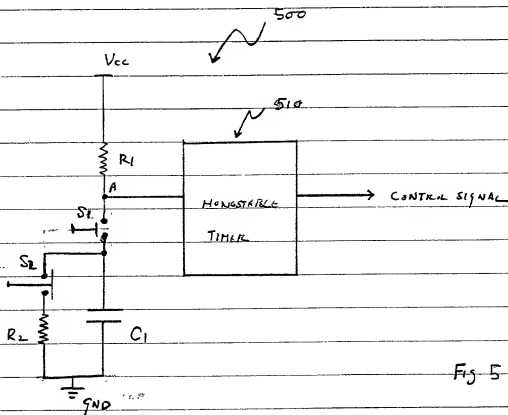 500
Vcc
510
R1
A
MONOSTABLE
TIMER
CONTROL SIGNAL
S1
S2
R2
C1
GND
Fig 5